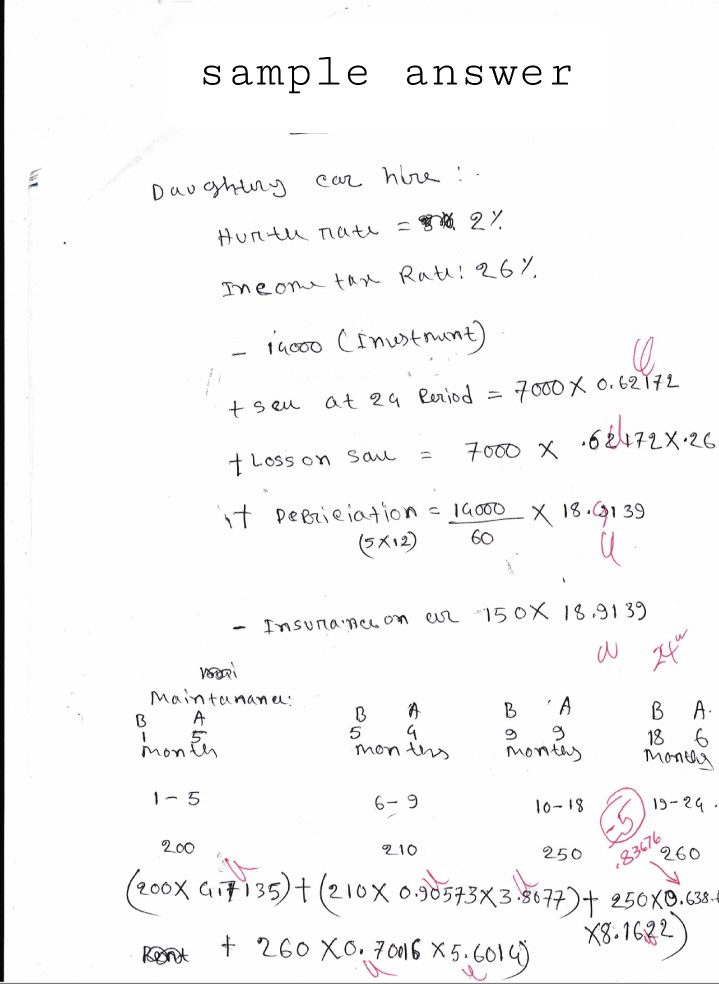 sample answer
Daughters car hire :-
Hurdle rate = 2%
Income tax Rate: 26%
- 14000 (Investment)
+ sell at 24 Period = 7000 X 0.62172
+ Loss on sale = 7000 X .62172X.26
+ Depriciation = 14000/60 X 18.9139
(5X12)
- Insurance on car 150X 18.9139
24
Maintanance:
B A B A B A B A.
1 5 5 4 9 9 18 6
months months months months
1-5 6-9 10-18 19-24.
-5
200 210 250 .83676 260
(200X 4.7135)+(210X 0.90573X3.8077)+ 250X0.638
X8.1622)
+ 260 X0.7016 X5.6014)